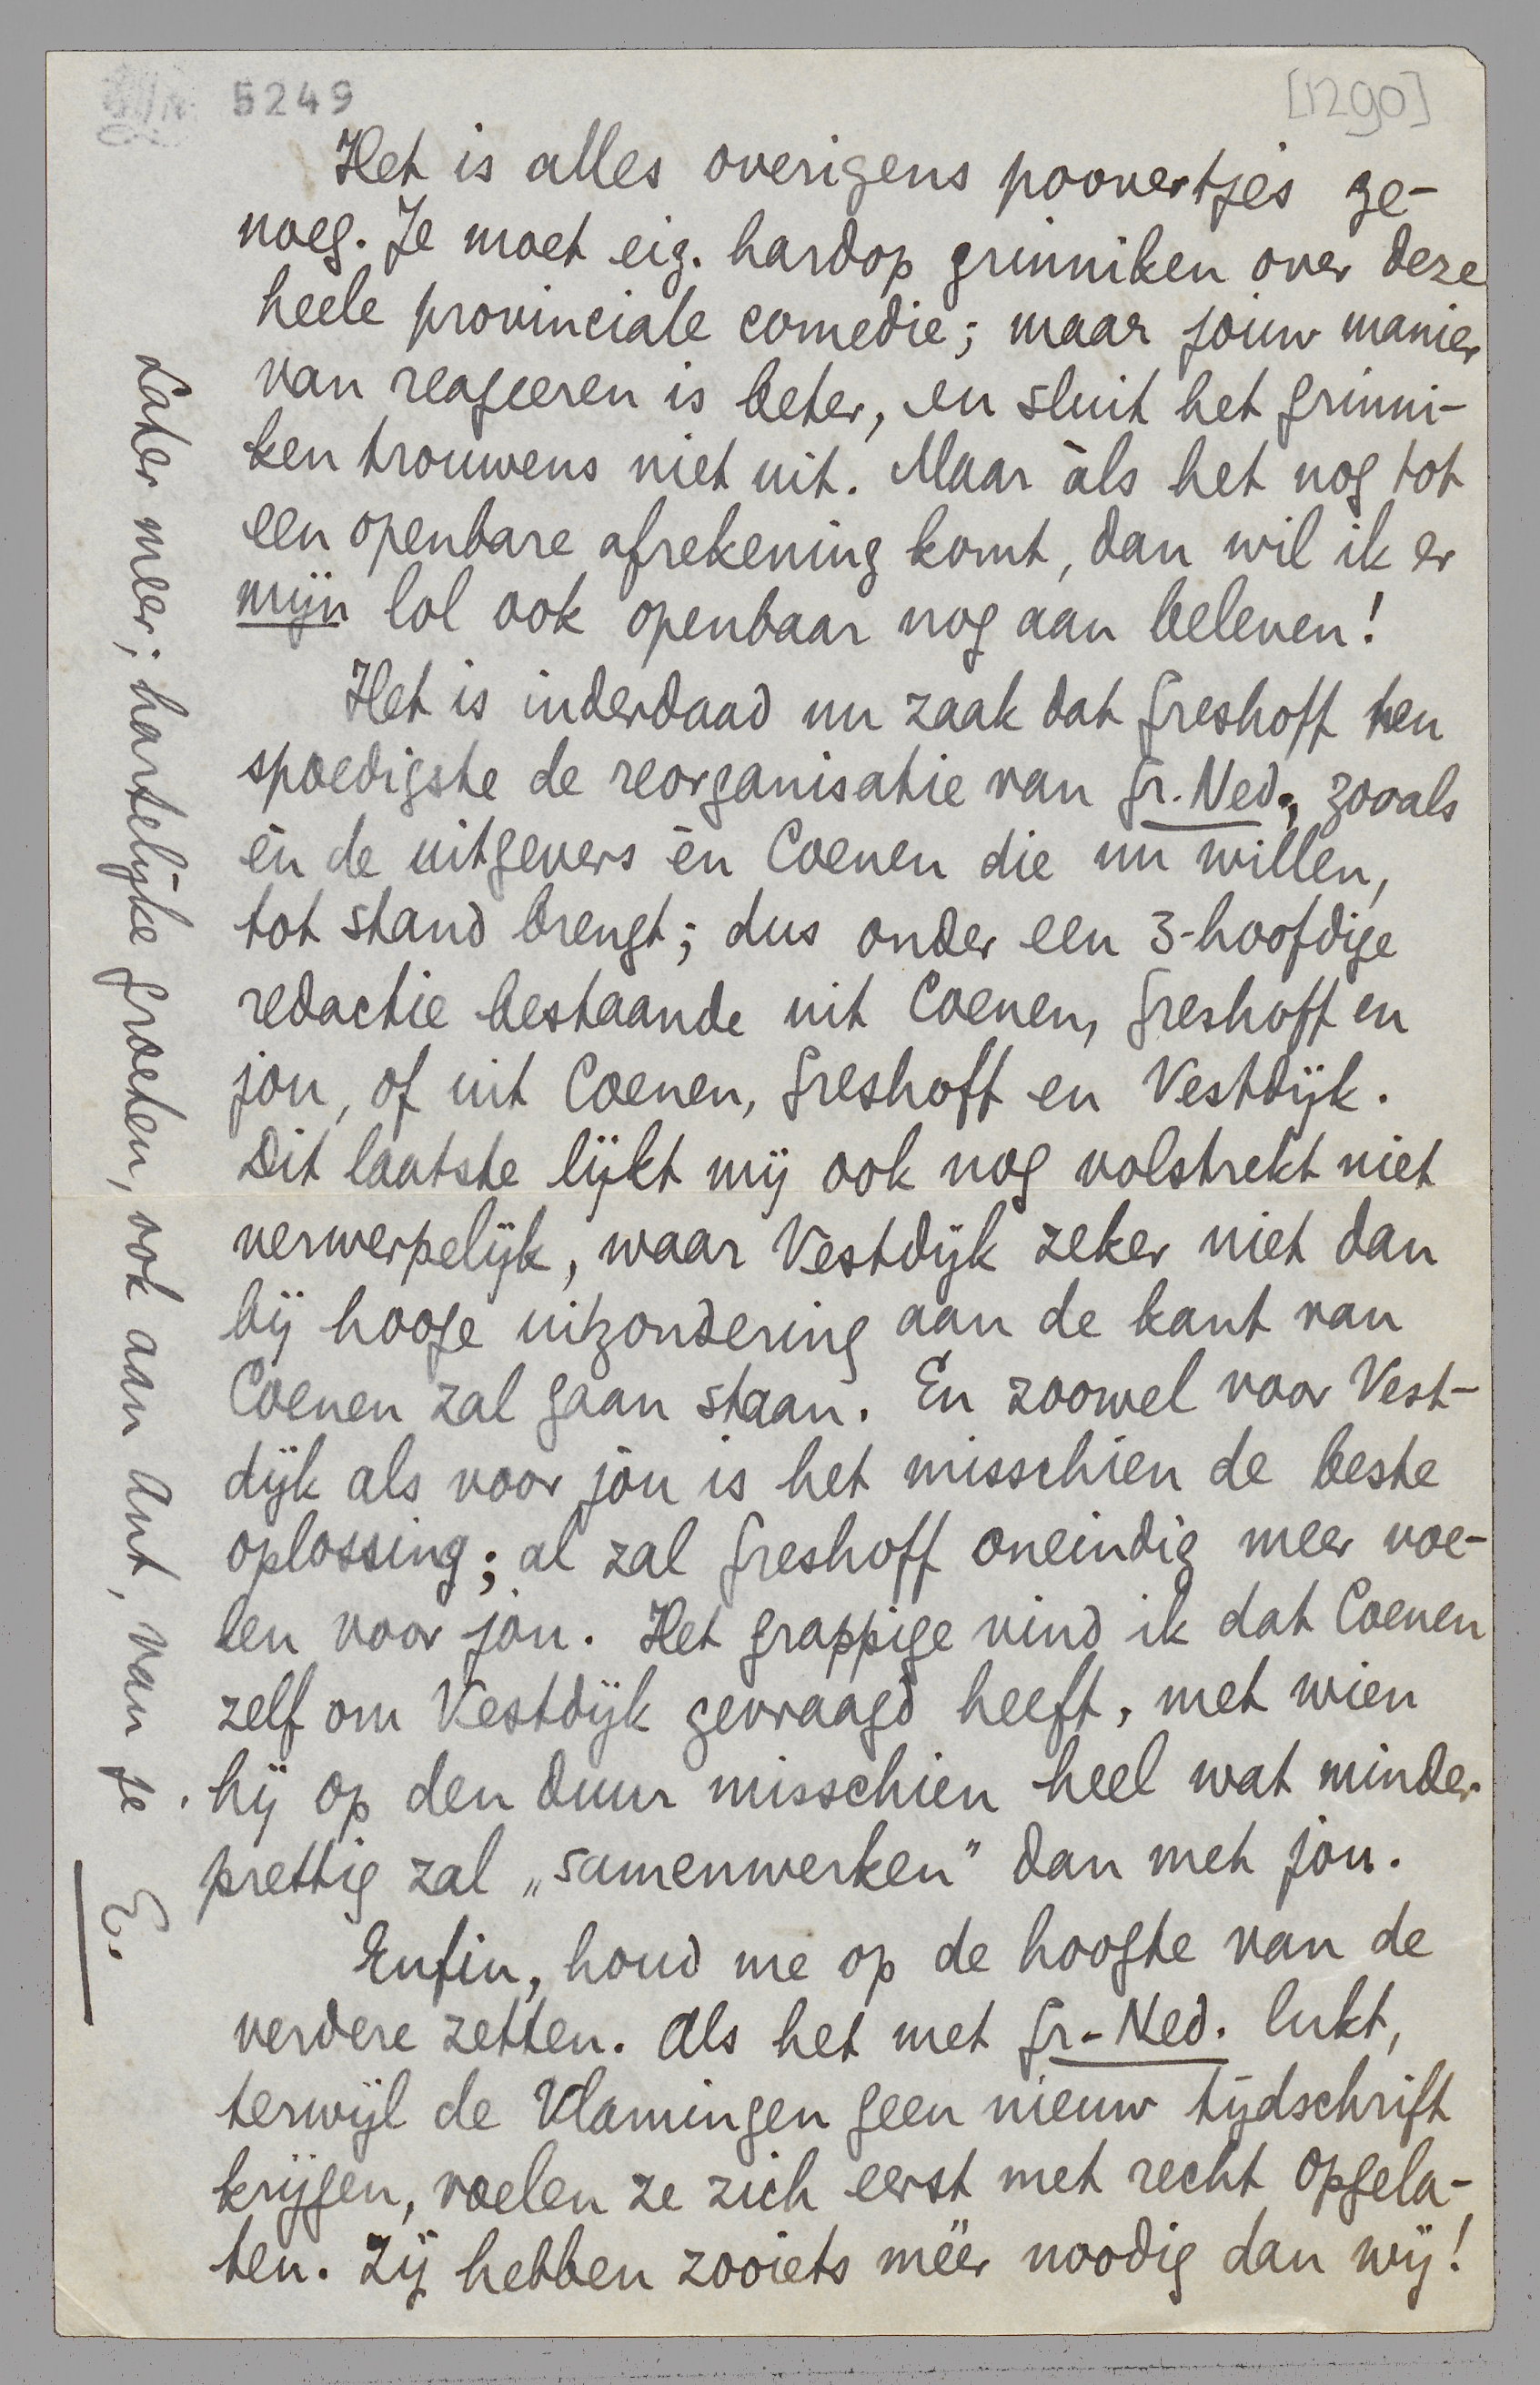 5249
[1290]
Het is alles overigens poovertjes ge-
noeg. Je moet eig. hardop grinniken over deze
heele provinciale comedie; maar jouw manier
van reageeren is beter, en sluit het grinni-
ken trouwens niet uit. Maar àls het nog tot
een openbare afrekening komt, dan wil ik er
mijn lol ook openbaar nog aan beleven!
Het is inderdaad nu zaak dat Greshoff ten
spoedigste de reorganisatie van Gr. Ned., zooals
èn de uitgevers èn Coenen die nu willen,
tot stand brengt; dus onder een 3-hoofdige
redactie bestaande uit Coenen, Greshoff en
jou, of uit Coenen, Greshoff en Vestdijk.
Dit laatste lijkt mij ook nog volstrekt niet
verwerpelijk, waar Vestdijk zeker niet dan
bij hooge uitzondering aan de kant van
Coenen zal gaan staan. En zoowel voor Vest-
dijk als voor jòu is het misschien de beste
oplossing; al zal Greshoff oneindig meer voe-
len voor jòu. Het grappige vind ik dat Coenen
zelf om Vestdijk gevraagd heeft, met wien
hij op den duur misschien heel wat minder
prettig zal „samenwerken” dan met jòu.
Enfin, houd me op de hoogte van de
verdere zetten. Als het met Gr-Ned. lukt,
terwijl de Vlamingen geen nieuw tijdschrift
krijgen, voelen ze zich eerst met recht opgela-
ten. Zij hebben zooiets méér noodig dan wij!
Later meer; hartelijke groeten, ook aan Ant, van je
E.